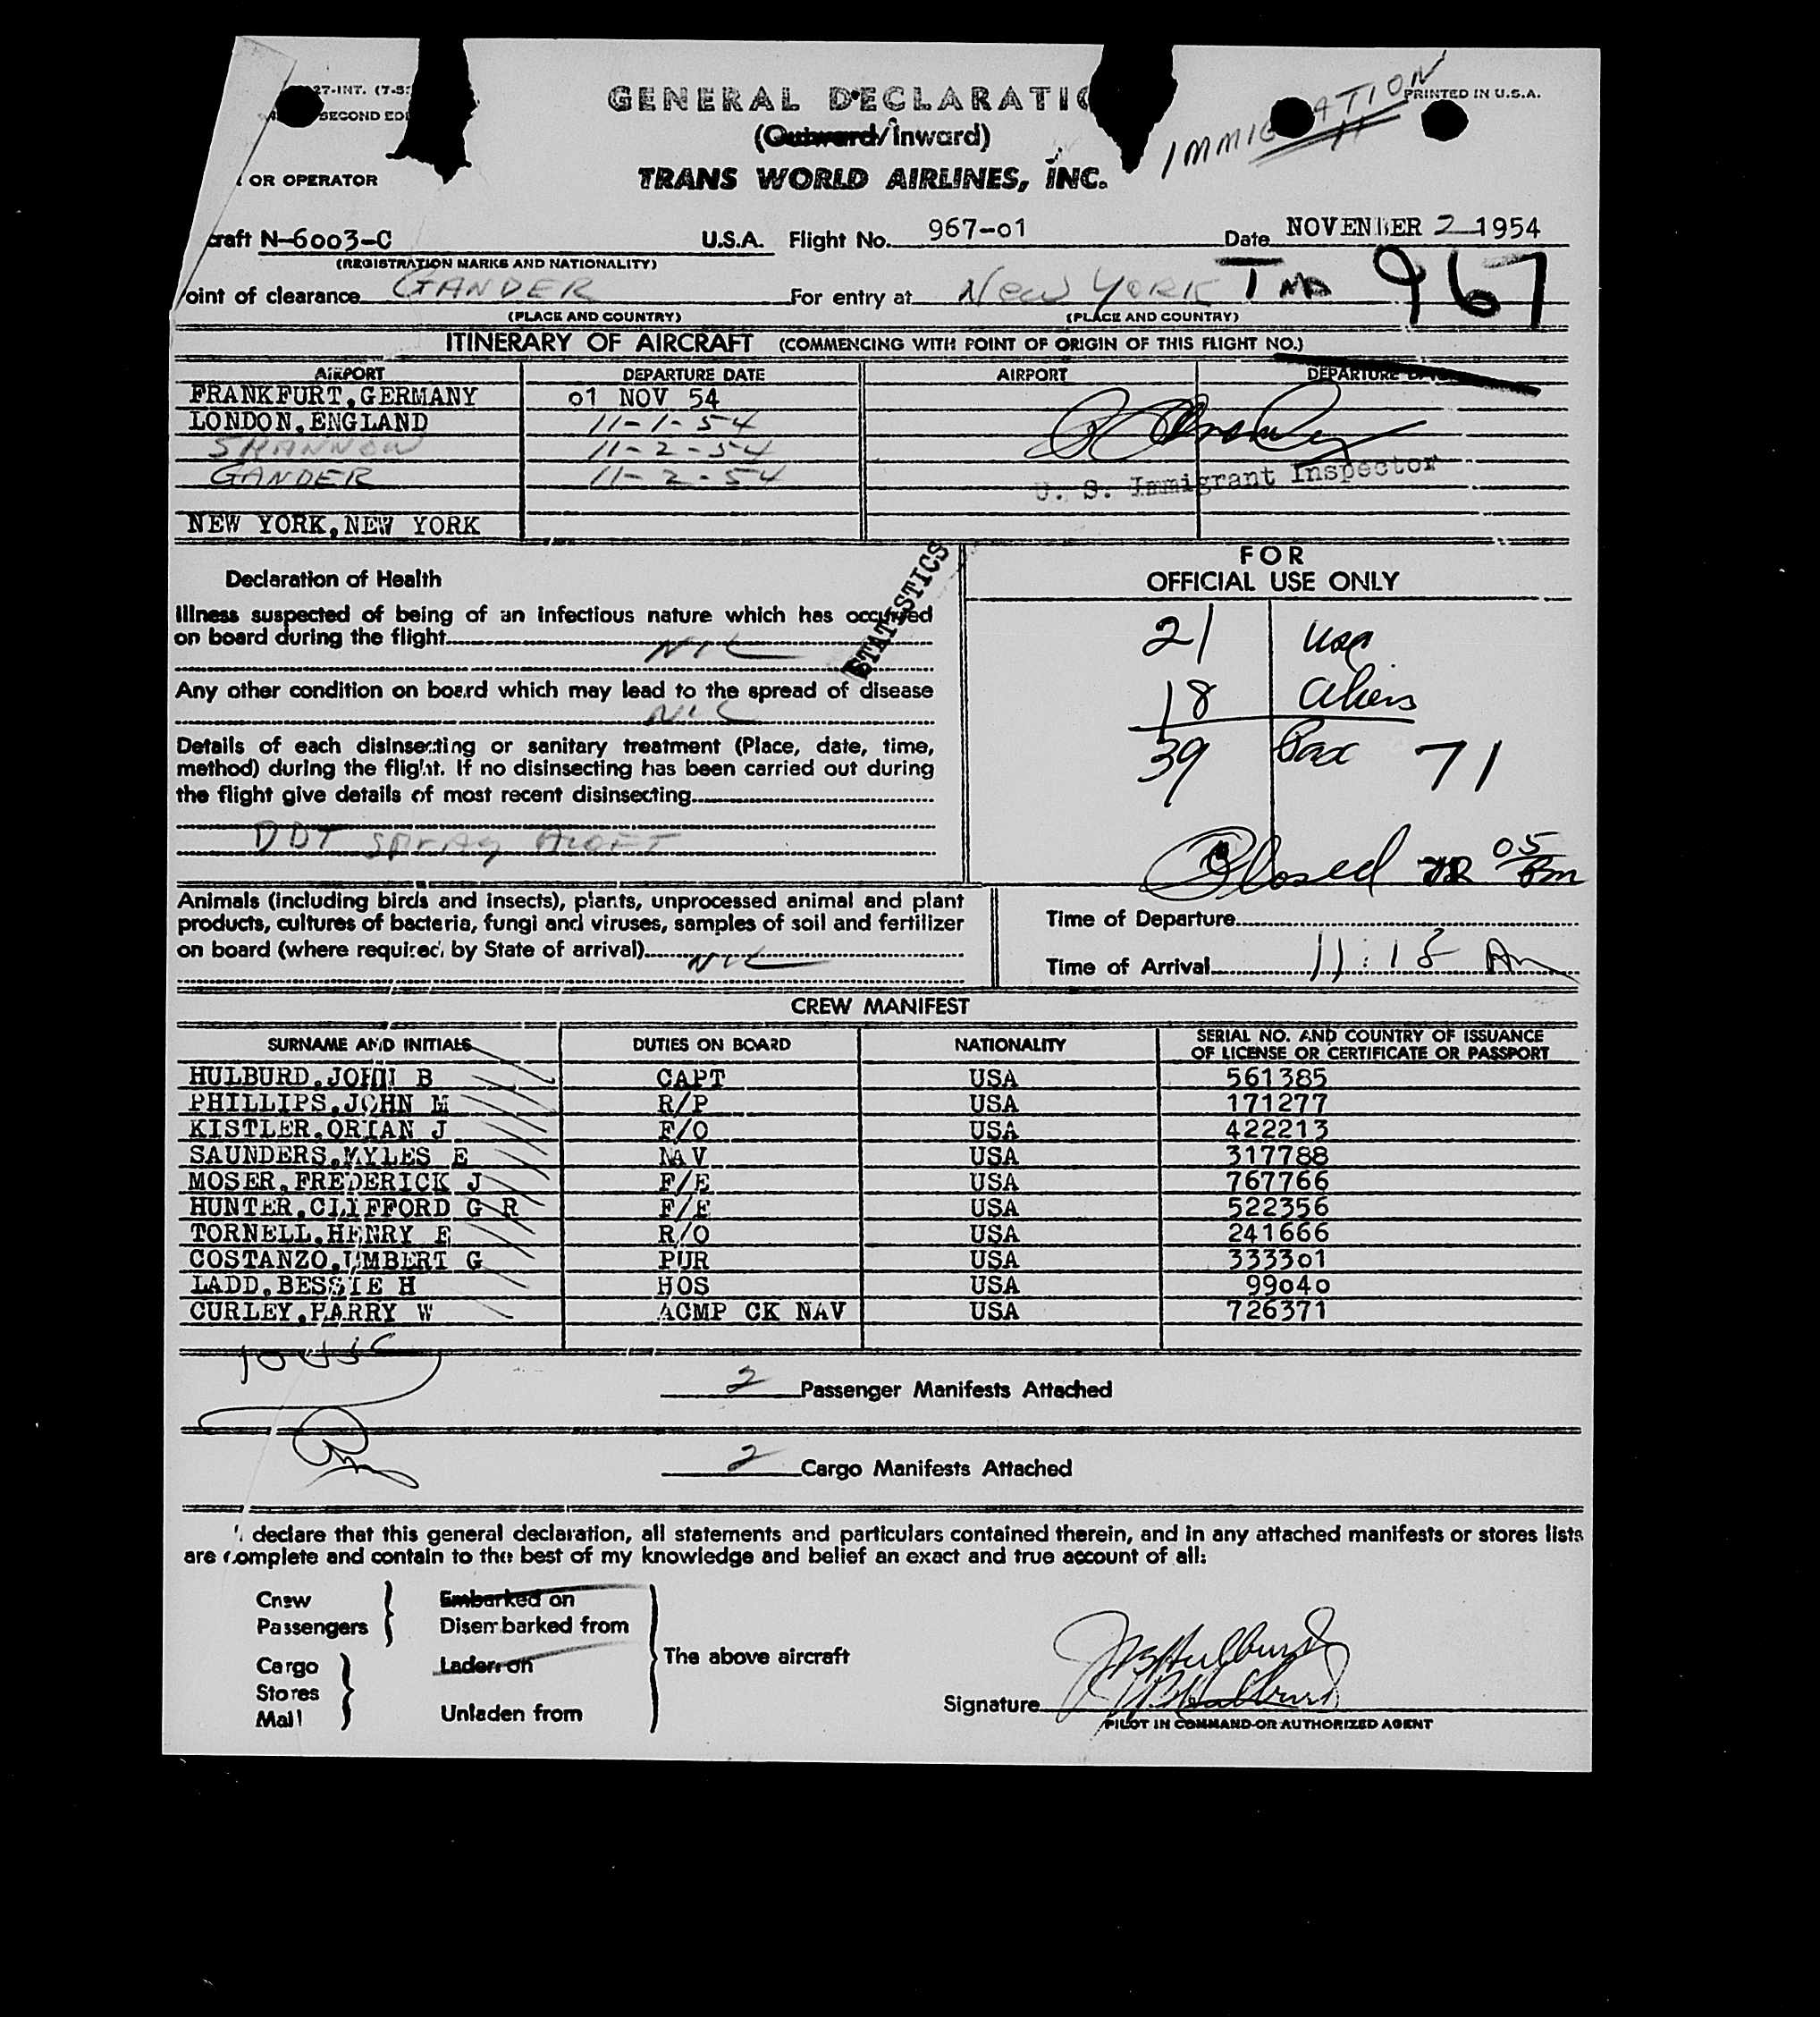 27-INT. (7-5
SECOND EDI
GENERAL DECLARATIO
(Outward/Inward)
TRANS WORLD AIRLINES, INC.
IMMIGRATION
PRINTED IN U.S.A.
OR OPERATOR
craft N-6003-C U.S.A. Flight No. 967-01 Date NOVEMBER 2 1954
(REGISTRATION MARKS AND NATIONALITY)
oint of clearance GANDER For entry at New York T 967
(PLACE AND COUNTRY) (PLACE AND COUNTRY)
ITINERARY OF AIRCRAFT (COMMENCING WITH POINT OF ORIGIN OF THIS FLIGHT NO.)
AIRPORT DEPARTURE DATE AIRPORT DEPARTURE DATE
FRANKFURT,GERMANY 01 NOV 54
LONDON,ENGLAND 11-1-54
SHANNON 11-2-54
GANDER 11-2-54
U. S. Immigrant Inspector
NEW YORK,NEW YORK
STATISTICS
Declaration of Health
Illness suspected of being of an infectious nature which has occurred
on board during the flight NIL
Any other condition on board which may lead to the spread of disease
NIL
Details of each disinsecting or sanitary treatment (Place, date, time,
method) during the flight. If no disinsecting has been carried out during
the flight give details of most recent disinsecting
DDT SPRAY ALOFT
FOR
OFFICIAL USE ONLY
21 usa
18 aliens
39 Pax 71
Closed 05
Animals (including birds and insects), plants, unprocessed animal and plant
products, cultures of bacteria, fungi and viruses, samples of soil and fertilizer
on board (where required by State of arrival) NIL
Time of Departure
Time of Arrival 11:18 Am
CREW MANIFEST
SURNAME AND INITIALS DUTIES ON BOARD NATIONALITY SERIAL NO. AND COUNTRY OF ISSUANCE
OF LICENSE OR CERTIFICATE OR PASSPORT
HULBURD,JOHN B CAPT USA 561385
PHILLIPS,JOHN M R/P USA 171277
KISTLER,ORIAN J F/O USA 422213
SAUNDERS,MYLES E NAV USA 317788
MOSER,FREDERICK J F/E USA 767766
HUNTER,CLIFFORD G R F/E USA 522356
TORNELL,HENRY E R/O USA 241666
COSTANZO,UMBERT G PUR USA 333301
LADD,BESSIE H HOS USA 99040
CURLEY,HARRY W ACMP CK NAV USA 726371
10 USC
2 Passenger Manifests Attached
2 Cargo Manifests Attached
I declare that this general declaration, all statements and particulars contained therein, and in any attached manifests or stores lists
are complete and contain to the best of my knowledge and belief an exact and true account of all:
Crew Embarked on
Passengers Disembarked from
The above aircraft
Cargo Laden on
Stores
Mail Unladen from
JB Hulburd
Signature JB Hulburd
PILOT IN COMMAND OR AUTHORIZED AGENT